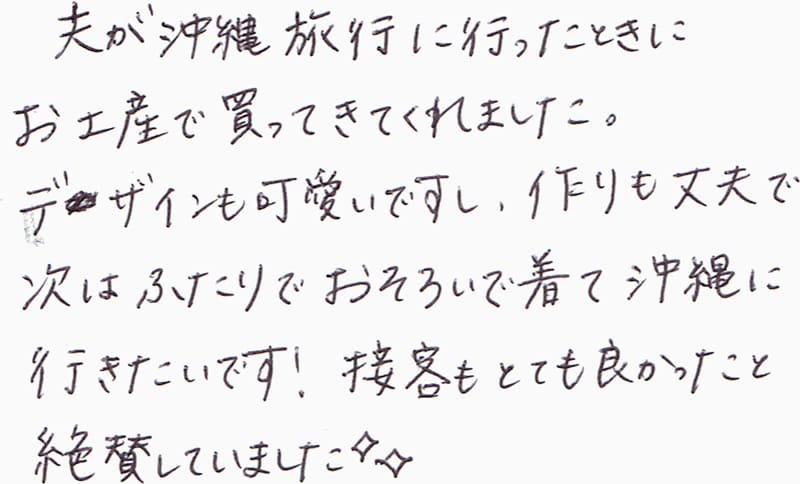 夫が沖縄旅行に行ったときに
お土産で買ってきてくれました。
デザインも可愛いですし、作りも丈夫で
次はふたりでおそろいで着て沖縄に
行きたいです！接客もとても良かったこと
絶賛していました✧✧